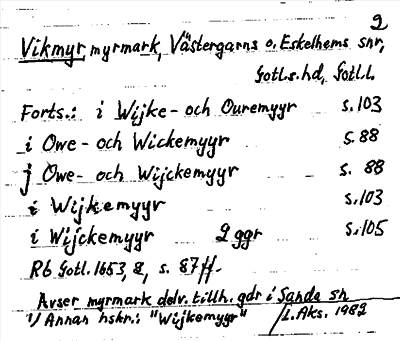 2
Vikmyr, myrmark, Västergarns o. Eskelhems snr,
Gotl.s.hd, Gotl.l.
Forts.: i Wijke- och Ouremyyr s.103
i Owe- och Wickemyyr s.88
j Owe- och Wijckemyyr s. 88
i Wijkemyyr s.103
i Wijckemyyr 2 ggr s.105
Rb Gotl. 1653, 2, s. 87 ff.
Avser myrmark delv. tillh. gdr i Sanda sn
1) Annan hskr.: "Wijkemyyr" /L.Aks. 1982